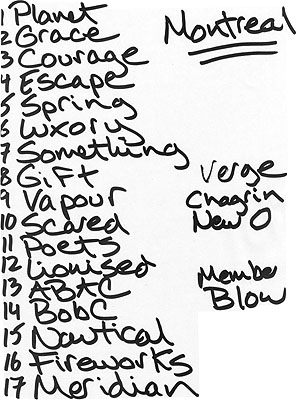 1 Planet
2 Grace
3 Courage
4 Escape
5 Spring
6 Luxory
7 Something
8 Gift
9 Vapour
10 Scared
11 Poets
12 Lionised
13 ABAC
14 BobC
15 Nautical
16 Fireworks
17 Meridian
Montreal
Verge
Chagrin
New O
Member
Blow